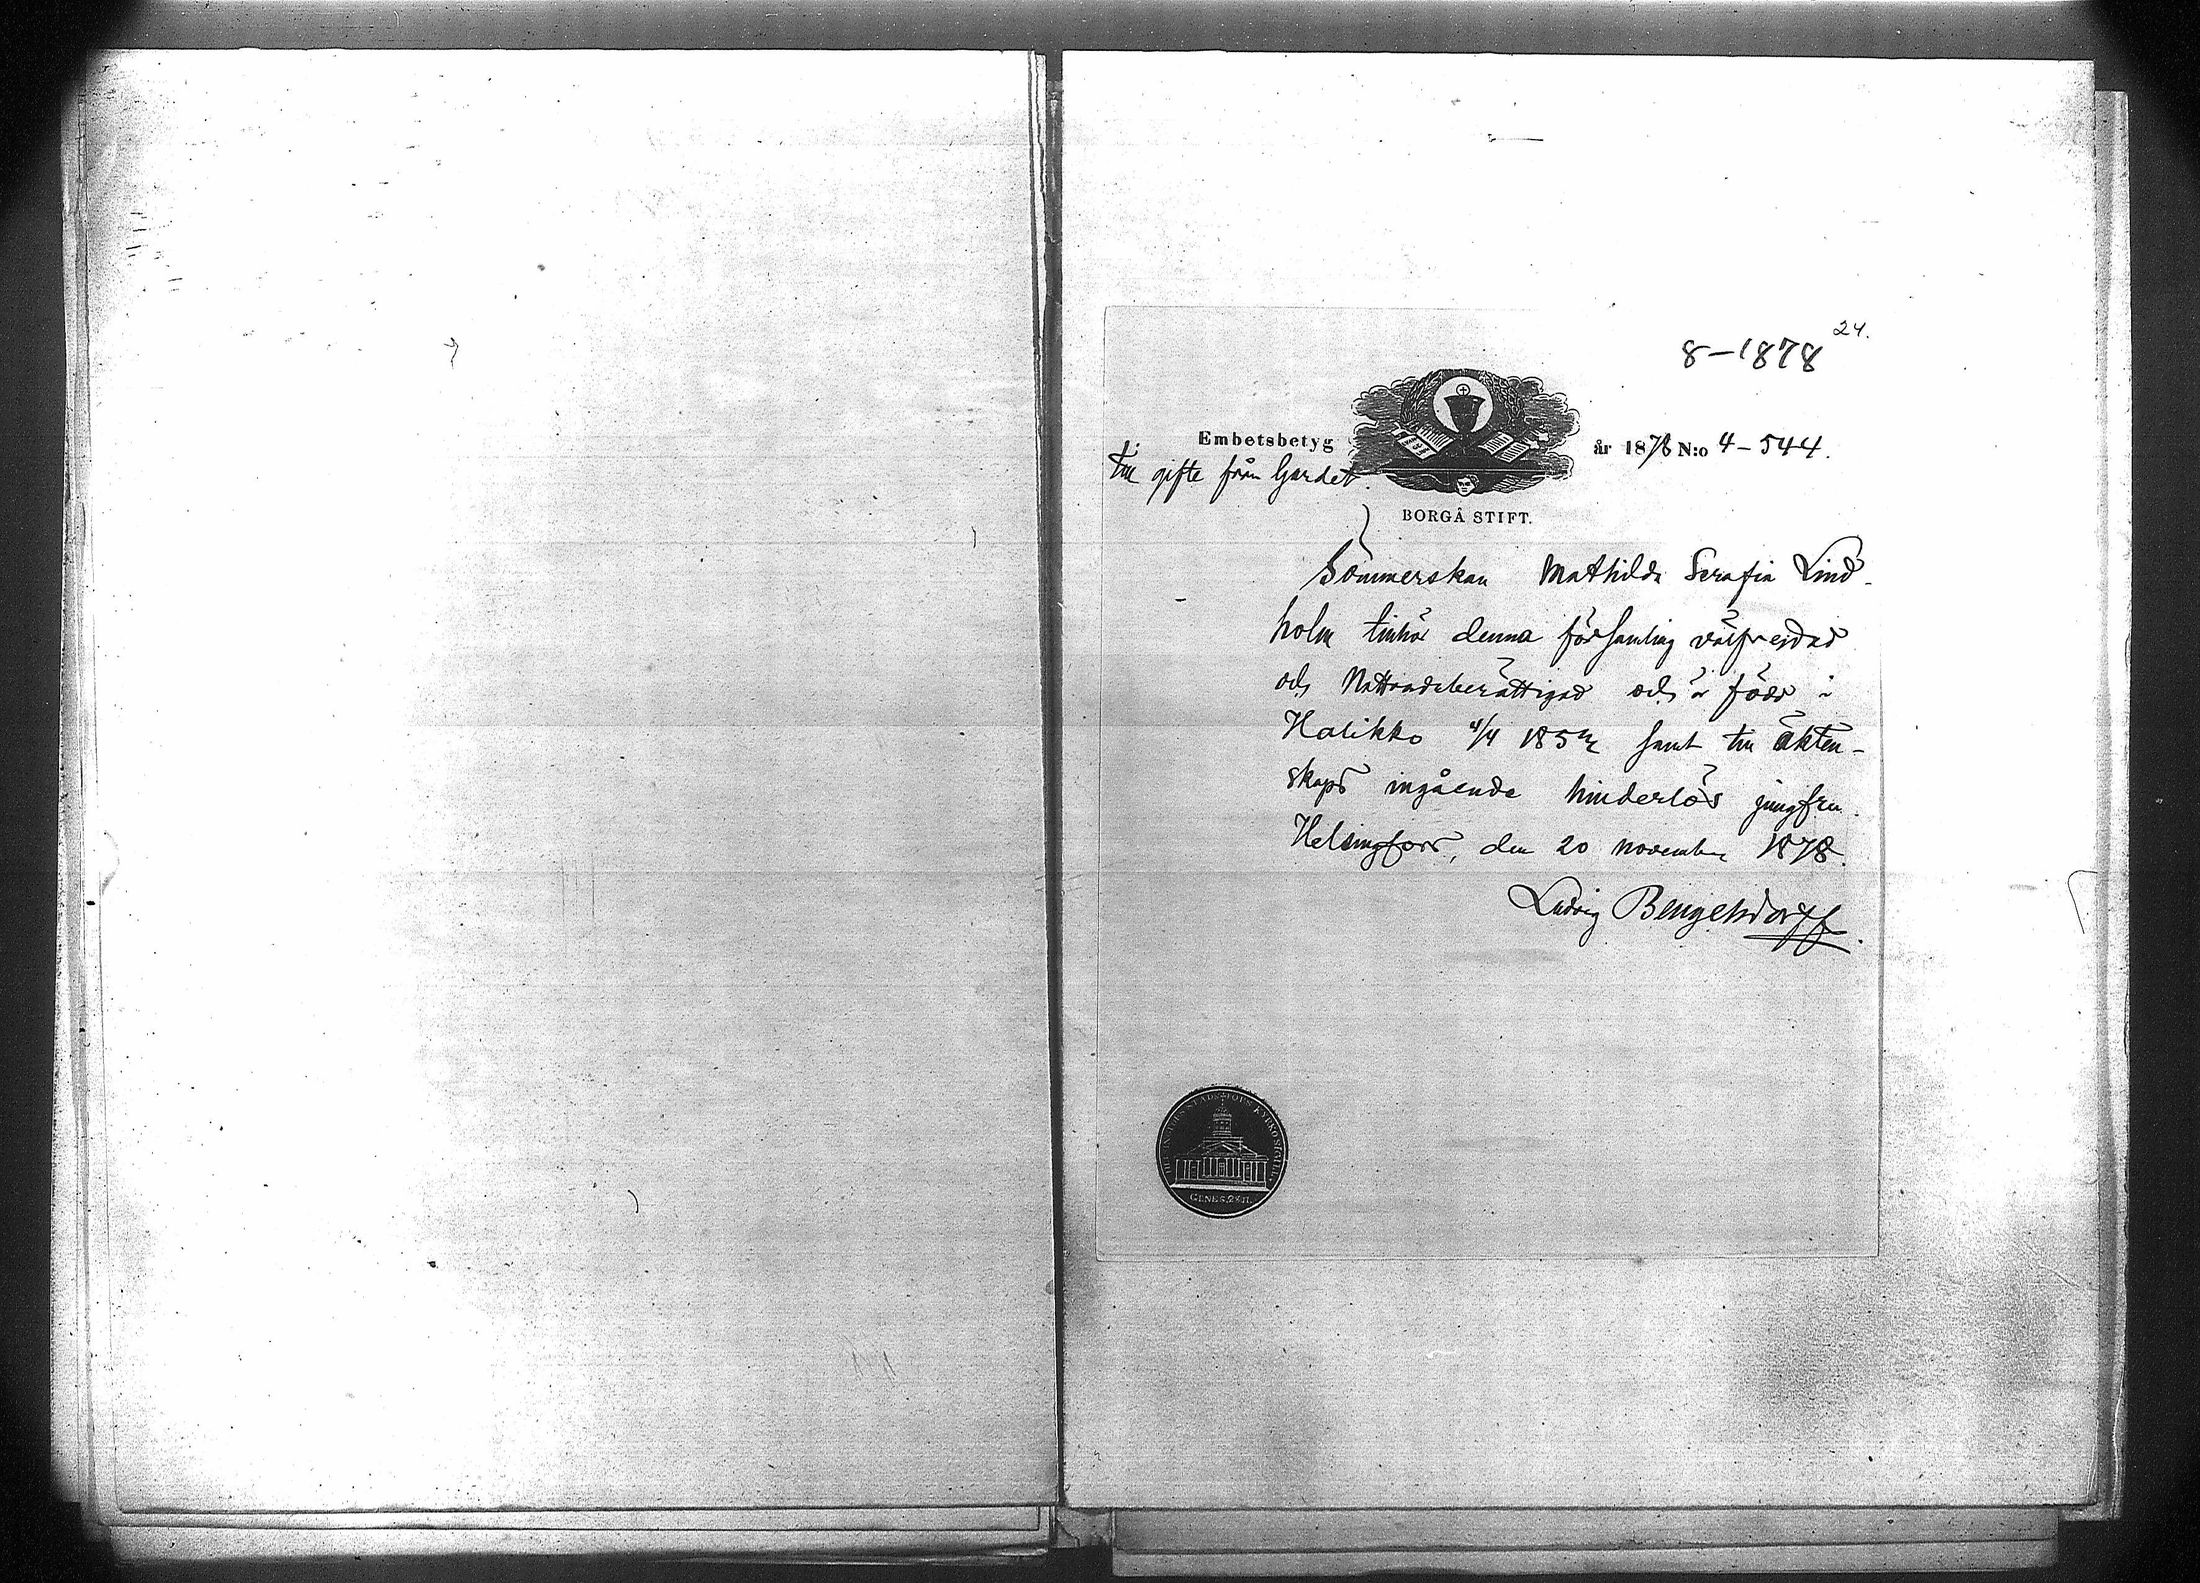 24.
8-1878
Embetsbetyg år 1878 N:o 4-544.
till gifte från Gardet.
BORGÅ STIFT.
Sömmerskan Mathilda Serafia Lind-
holm tillhör denna församling välfrejdad
och Nattvardsberättigad och är född i
Halikko 4/4 185 samt till äkten-
skaps ingående hinderlös jungfru.
Helsingfors, den 20 november 1878.
Ludvig Bengelsdorff.
GENES. 28:17.